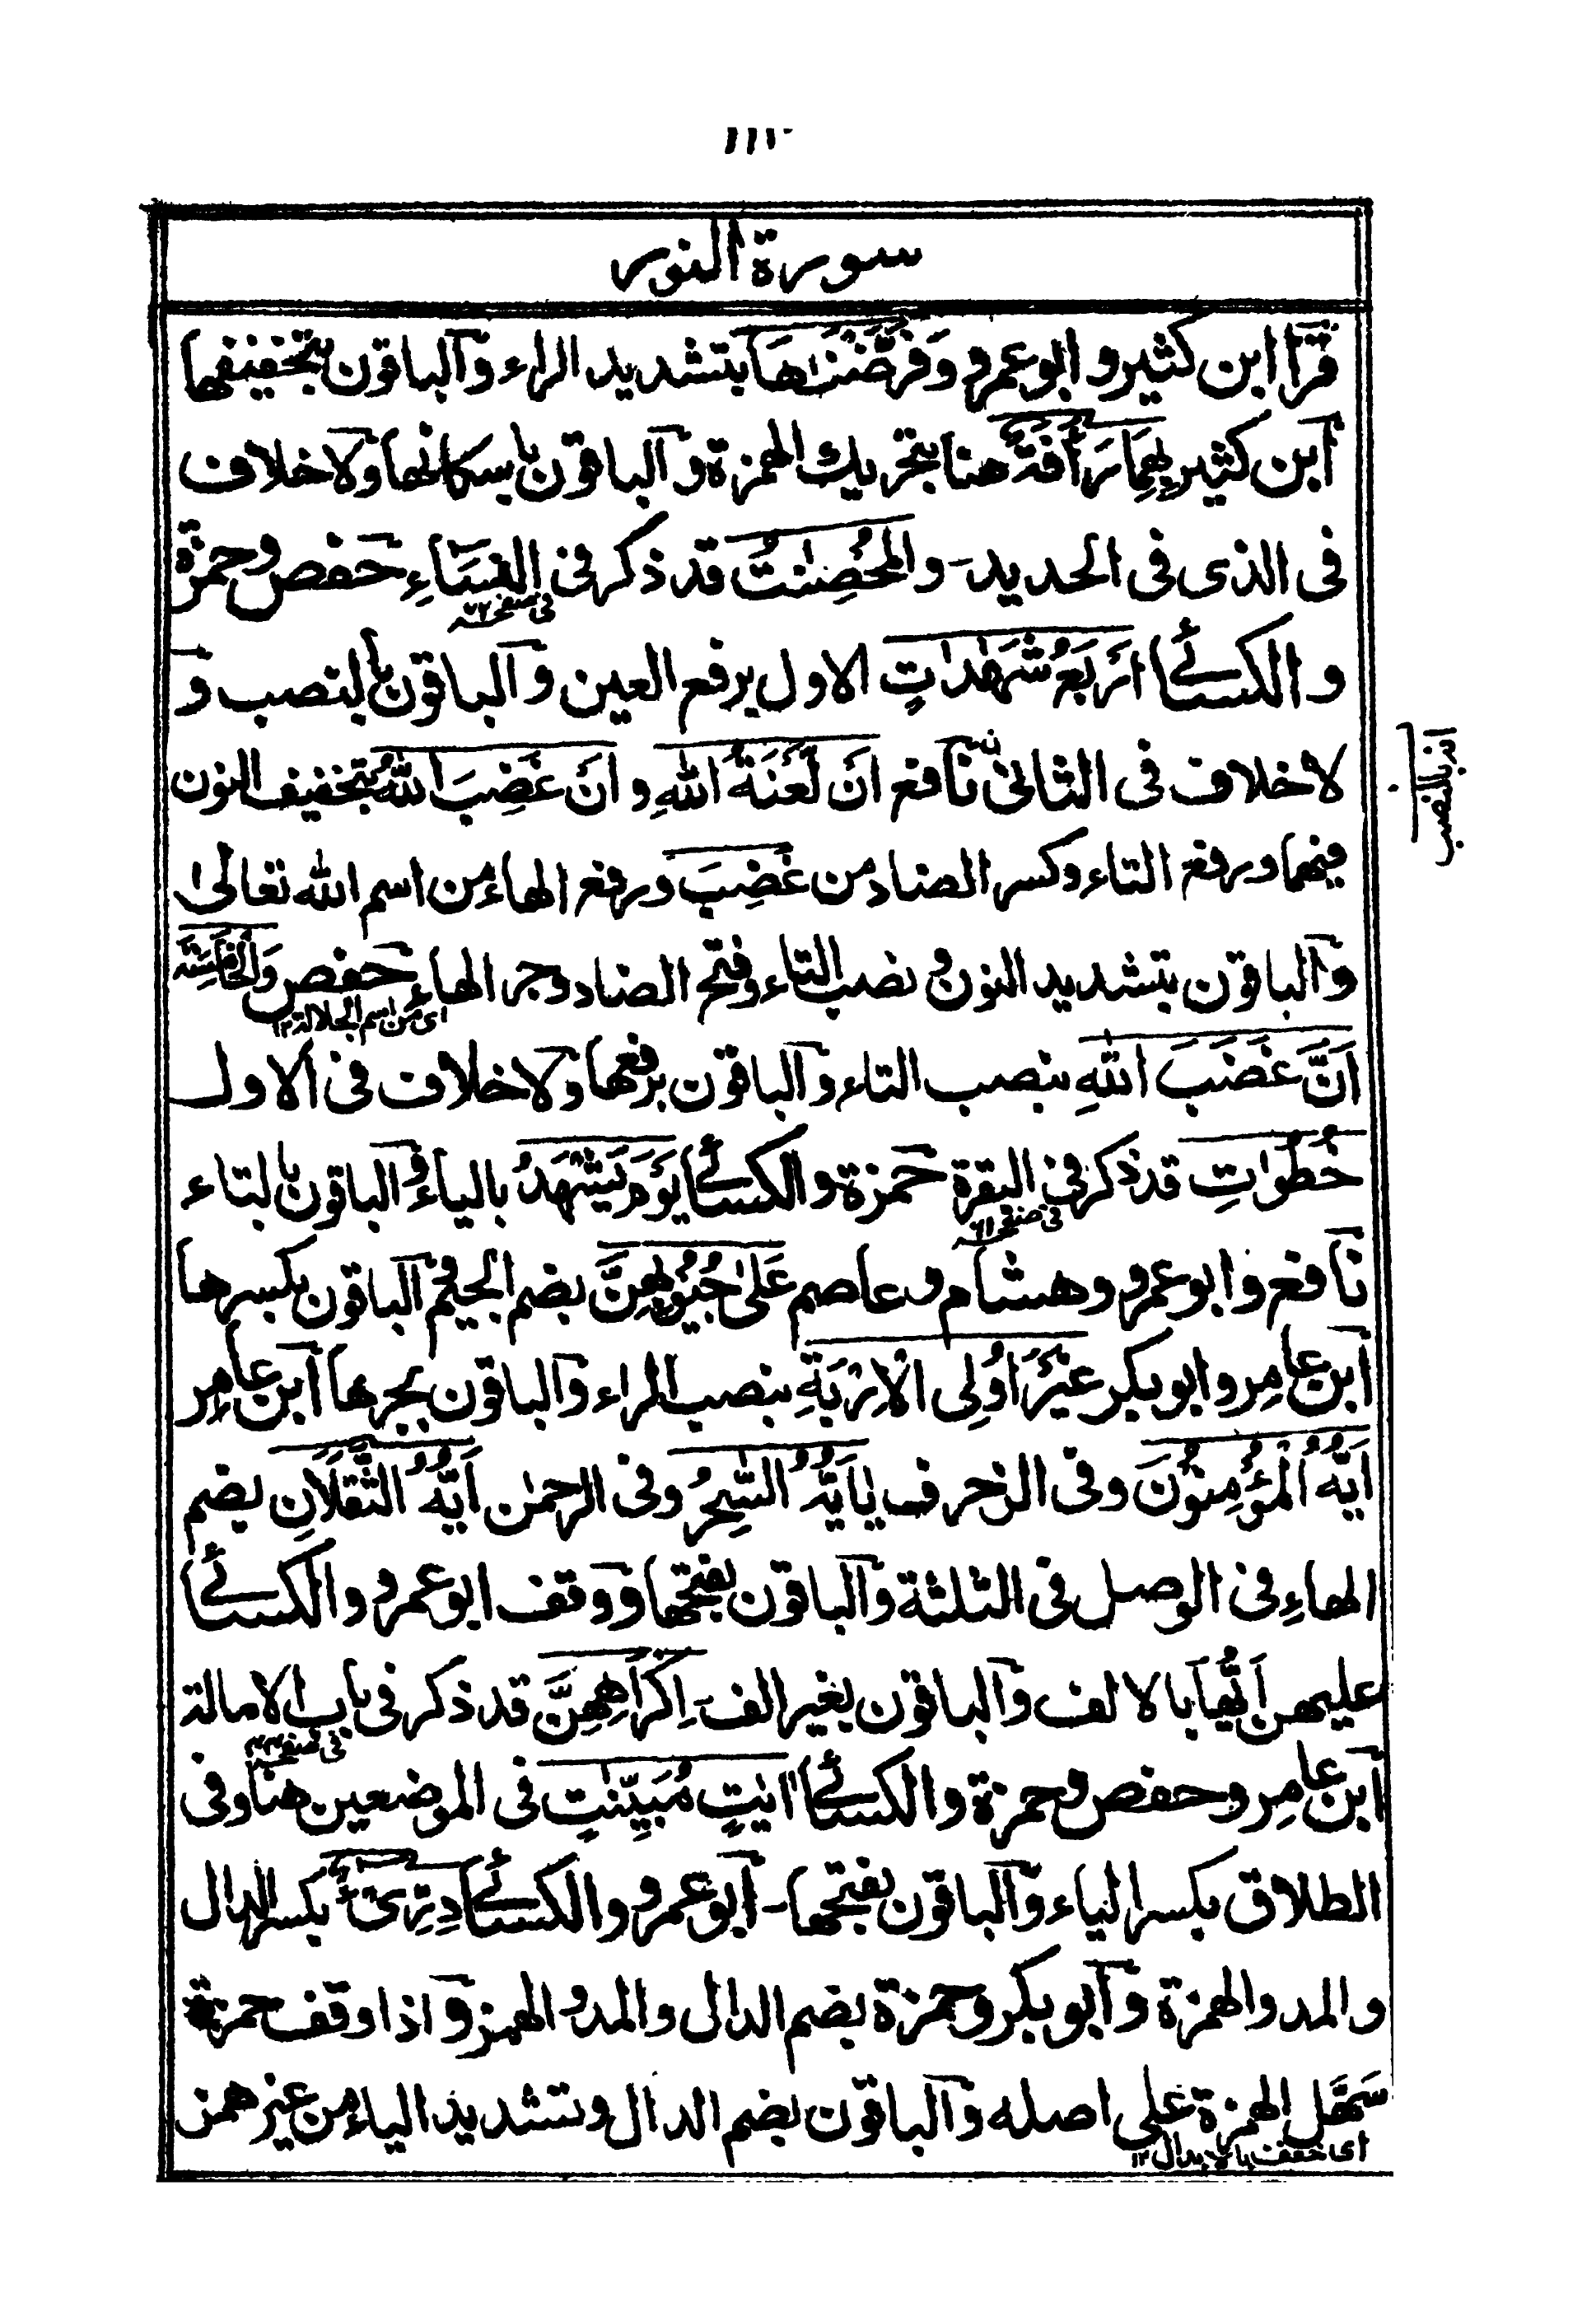 ١١١
سورة النور
قرا ابن كثير و ابو عمرو وَفَرَضْنٰهَا بتشديد الراء و الباقون بتخفيفها
ابن كثير بِهِمَا رَأْفَةٌ هنا بتحريك الهمزة و الباقون باسكانها ولا خلاف
فى الذى فى الحديد - و المُحْصِنٰتُ قد ذكر فى النِّسَاءِ حفص و حمزة
فى صفحه ٧٢
و الكسائے اَرْبَعُ شَهٰدٰتٍ الاول برفع العين و الباقون بالنصب و
لا خلاف فى الثانى نافع اَنْ لَعْنَةُ اللهِ و اَنْ غَضِبَ اللهُ بتخفيف النون
انه بالنصب
فيهما و رفع التاء و كسر الضاد من غَضِبَ و رفع الهاء من اسم الله تعالىٰ
و الباقون بتشديد النون و نصب التاء و فتح الضاد و جر الهاء حفص وَالْخَامِسَةَ
اى من اسم الجلالة ١٢
اَنَّ غَضَبَ اللهِ بنصب التاء و الباقون برفعها و لا خلاف فى الاول
خُطُوٰتِ قد ذكر فى البقرة حمزة و الكسائے يَوْمَ يَشْهَدُ بالياء و الباقون بالتاء
فى صفحه ٦١
نافع و ابو عمرو و هشام و عاصم عَلىٰ جُيُوْبِهِنَّ بضم الجيم و الباقون بكسرها
ابن عامر و ابو بكر غَيْرَ اُولِى الْاِرْبَةِ بنصب الراء و الباقون بجرها ابن عامر
اَيُّهُ الْمُؤْمِنُوْنَ و فى الزخرف يٰاَيُّهُ السّٰحِرُ و فى الرحمٰن اَيُّهُ الثَّقَلَانِ بضم
الهاءِ فى الوصل فى الثلثة و الباقون بفتحها و وقف ابو عمرو و الكسائے
عليهن اَيُّهَا بالالف و الباقون بغير الف - اِكْرَاهِهِنَّ قد ذكر فى باب الامالة
فى صفحه ٤٣
ابن عامر و حفص و حمزة و الكسائے اٰيٰتٍ مُبَيِّنٰتٍ فى الموضعين هنا و فى
الطلاق بكسر الياء و الباقون بفتحها - ابو عمرو و الكسائے دِرِّىْءٌ بكسر الدال
و المد و الهمزة و ابو بكر و حمزة بضم الدال و المد و الهمز و اذا وقف حمزة
سَهَّل الهمزة على اصله و الباقون بضم الدال و تشديد الياء من غير همز
اى خفف بالابدال ١٢